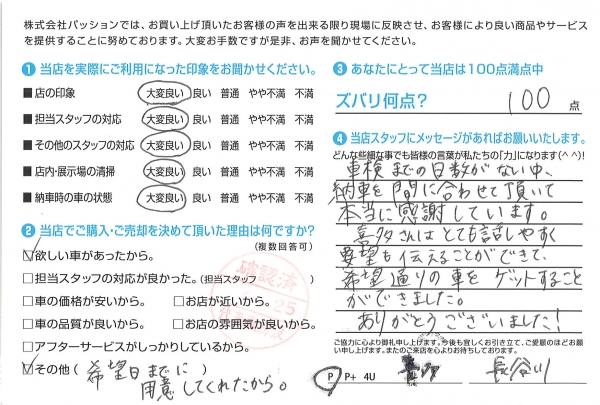 株式会社パッションでは、お買い上げ頂いたお客様の声を出来る限り現場に反映させ、お客様により良い商品やサービス
を提供することに努めております。大変お手数ですが是非、お声を聞かせてください。
❶ 当店を実際にご利用になった印象をお聞かせください。
■ 店の印象 大変良い 良い 普通 やや不満 不満
■ 担当スタッフの対応 大変良い 良い 普通 やや不満 不満
■ その他のスタッフの対応 大変良い 良い 普通 やや不満 不満
■ 店内・展示場の清掃 大変良い 良い 普通 やや不満 不満
■ 納車時の車の状態 大変良い 良い 普通 やや不満 不満
❷ 当店でご購入・ご売却を決めて頂いた理由は何ですか?
(複数回答可)
☑欲しい車があったから。
□担当スタッフの対応が良かった。(担当スタッフ )
□車の価格が安いから。 □お店が近いから。
□車の品質が良いから。 □お店の雰囲気が良いから。
□アフターサービスがしっかりしているから。
☑その他( 希望日までに
用意してくれたから。
確認済
25
❸ あなたにとって当店は100点満点中
ズバリ何点? 100 点
❹ 当店スタッフにメッセージがあればお願いいたします。
どんな些細な事でも皆様の言葉が私たちの「力」になります(^^)!
車検までの日数がない中、
納車を間に合わせて頂いて
本当に感謝しています。
喜多さんはとても話しやすく
要望も伝えることができて、
希望通りの車をゲットすること
ができました。
ありがとうございました!
ご協力に心より御礼申し上げます。今後も宜しくお引き立て、ご愛顧のほどお願
い申し上げます。またのご来店を心よりお待ちしております。
P P+ 4U 喜多 長谷川